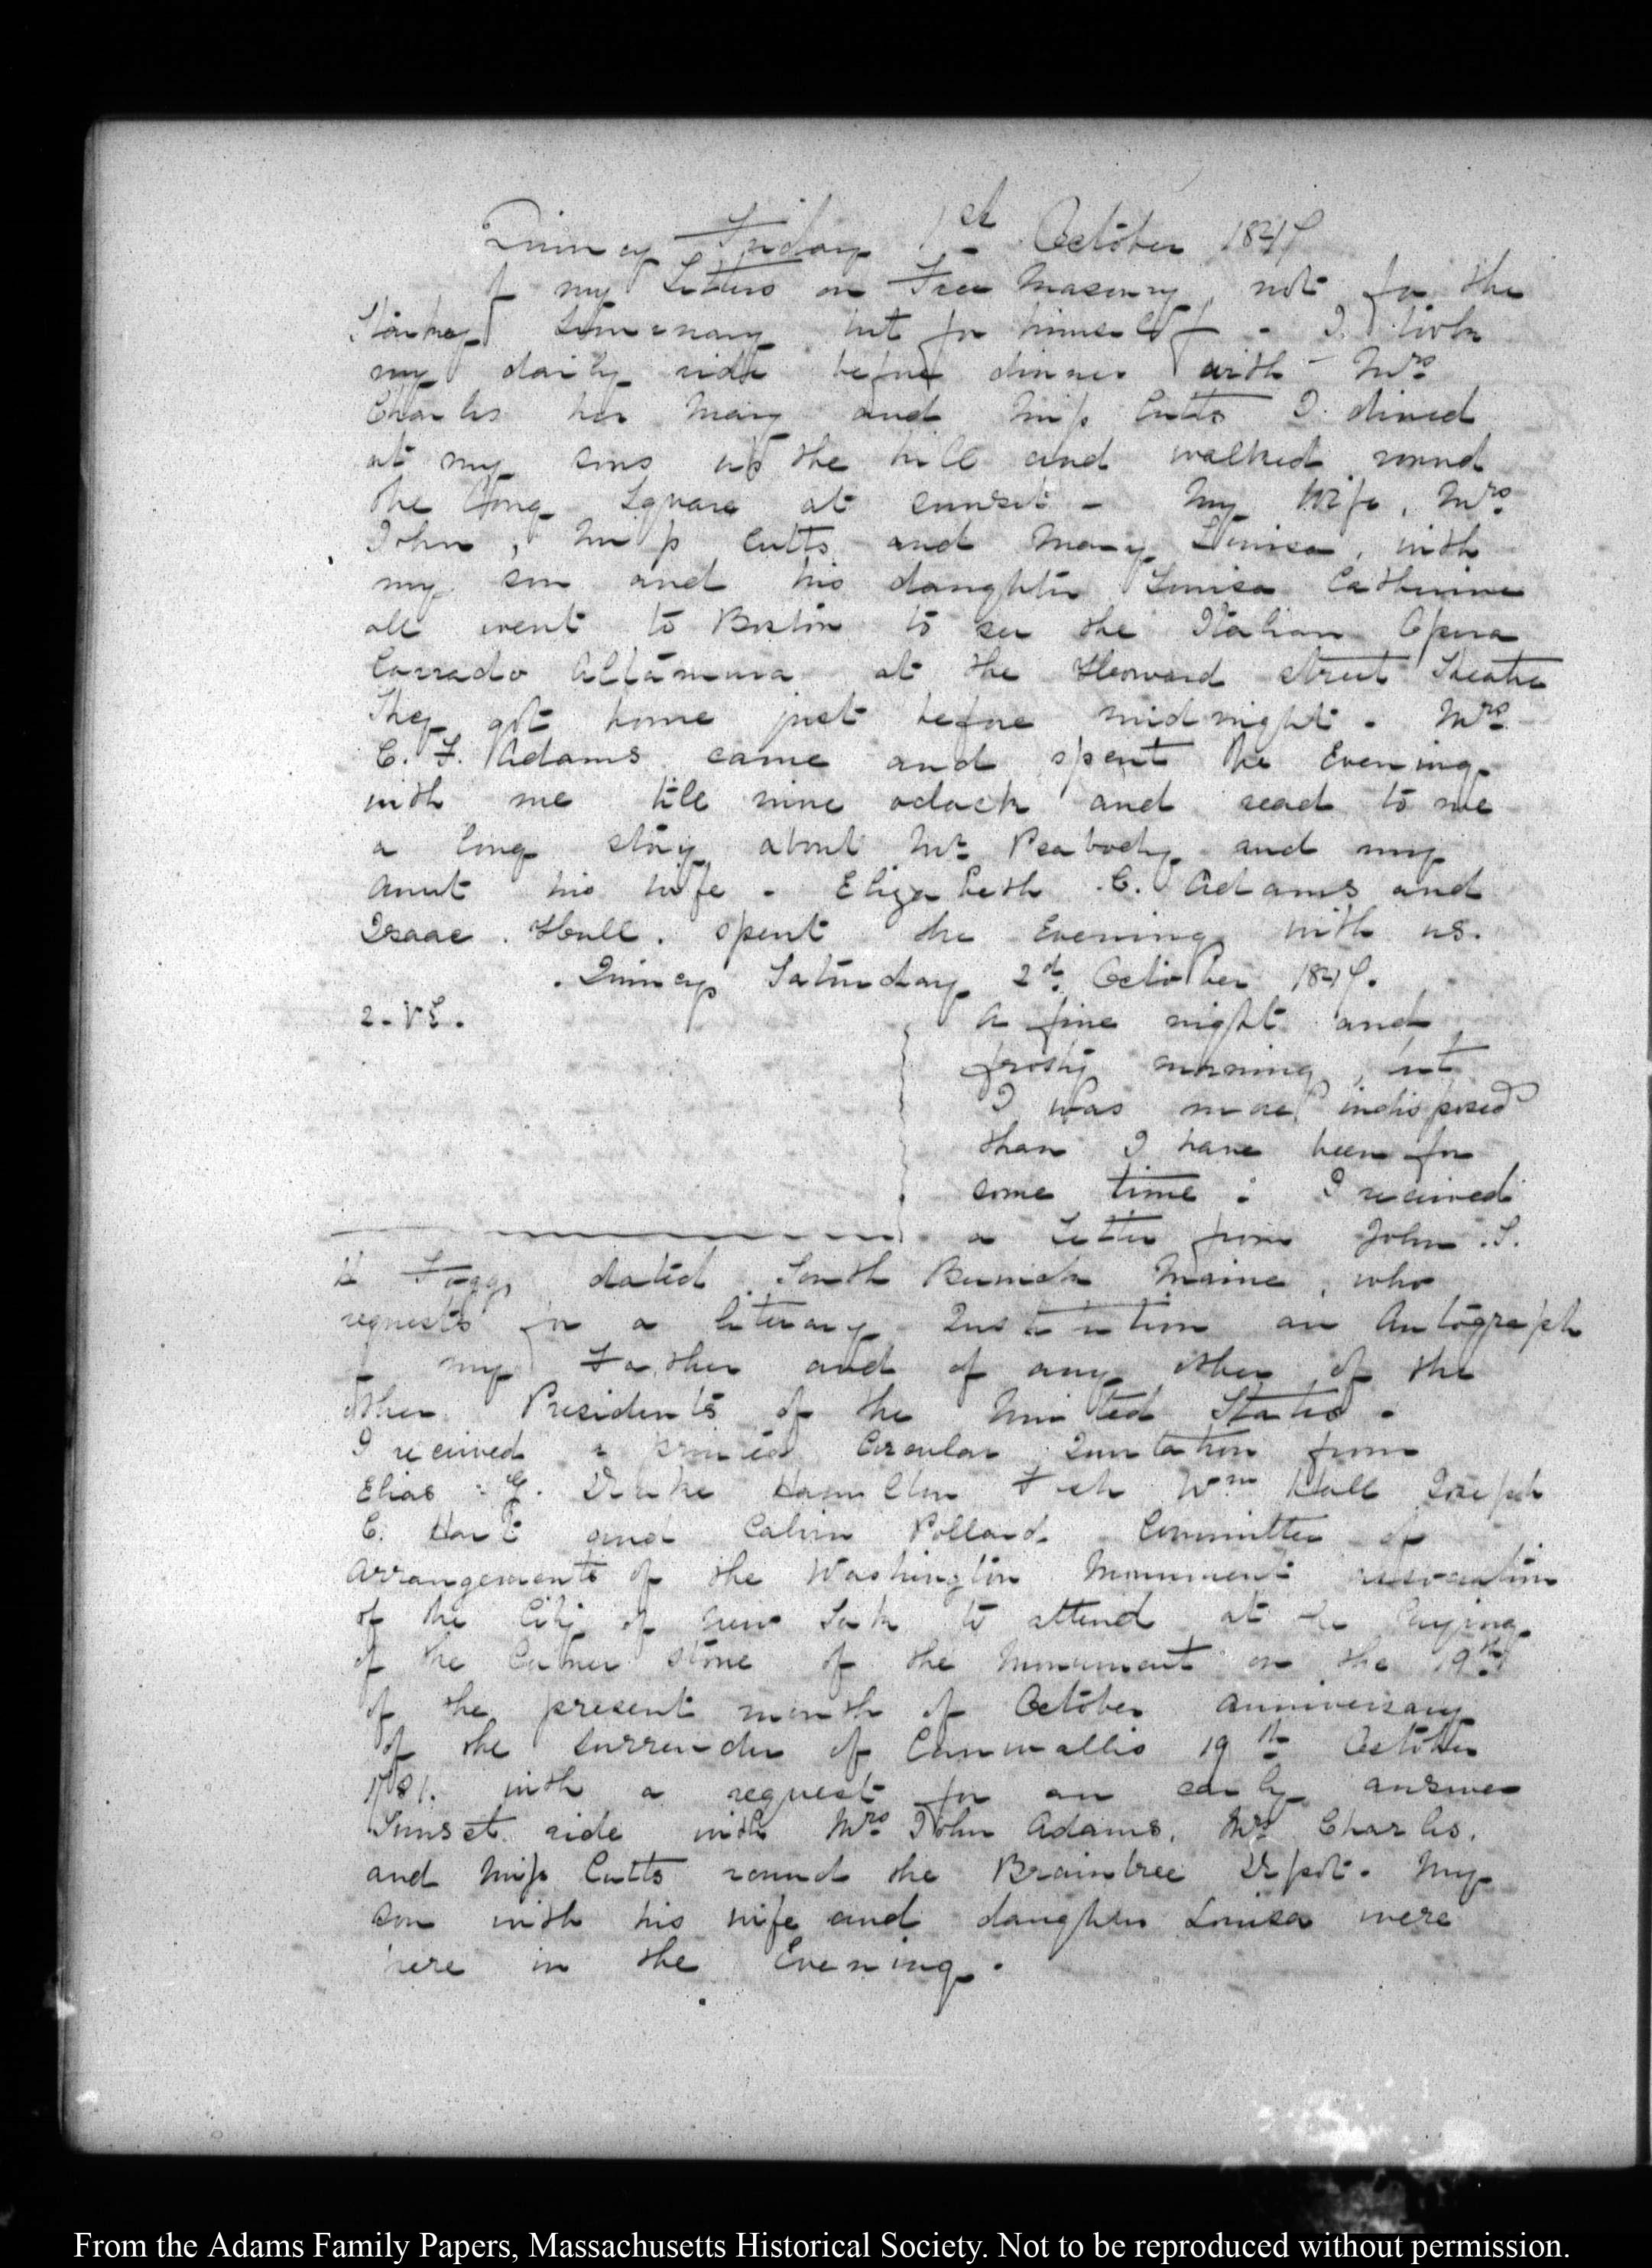 Quincy Friday 1st October 1847
of my Letters on Free Masonry, not for the
Seminary but for himself - I took
my daily ride before dinner with Mrs
Charles her Mary and Miss Cutts I dined
at my sons up the hill and walked round
the Long Square at sunset - My Wife, Mrs
John, Miss Cutts and Mary Louisa, with
my son and his daughter Louisa Catherine
all went to Boston to see the Italian Opera
Corrado Altamura at the Howard street Theatre
They got home just before midnight. Mrs
C. F. Adams came and spent the Evening
with me till nine oclock and read to me
a long story about Mr Peabody and my
Aunt his wife. Elizabeth C. Adams and
Isaac Hull. spent the Evening with us.
Quincy Saturday 2d. October 1847.
2.
A fine night and
frosty morning, but
I was more indisposed
than I have been for
some time: I received
a Letter from John S.
H Fogg, dated South Berwick Maine, who
requests for a literary Institution an Autograph
of my Father and of any other of the
other Presidents of the United States.
I received a printed Circular Invitation from
Elias G. Drake Hamilton Fish Wm Hall Joseph
C. Hart and Calvin Pollard. Committee of
Arrangements of the Washington Monument association
of the City of New York to attend at the laying
of the Corner stone of the Monument on the 19th
of the present month of October anniversary
of the surrender of Cornwallis 19th October
1781. with a request for an early answer
Sunset ride with Mrs John Adams, Mrs Charles,
and Miss Cutts round the Braintree Depot. My
son with his wife and daughter Louisa were
here in the Evening.
From the Adams Family Papers, Massachusetts Historical Society. Not to be reproduced without permission.